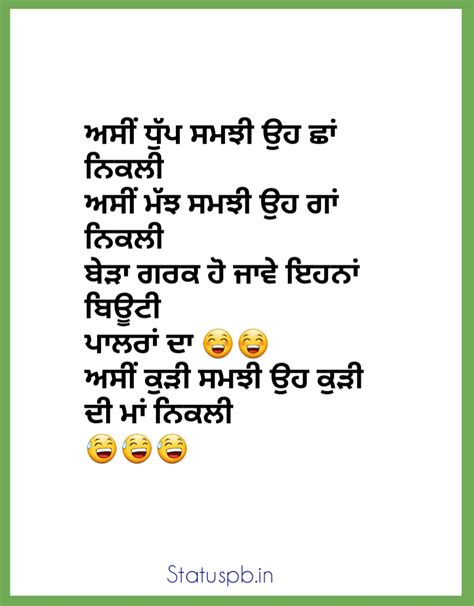 ਅਸੀਂ ਧੁੱਪ ਸਮਝੀ ਉਹ ਛਾਂ
ਨਿਕਲੀ
ਅਸੀਂ ਮੱਝ ਸਮਝੀ ਉਹ ਗਾਂ
ਨਿਕਲੀ
ਬੇੜਾ ਗਰਕ ਹੋ ਜਾਵੇ ਇਹਨਾਂ
ਬਿਊਟੀ
ਪਾਲਰਾਂ ਦਾ 😅😅
ਅਸੀਂ ਕੁੜੀ ਸਮਝੀ ਉਹ ਕੁੜੀ
ਦੀ ਮਾਂ ਨਿਕਲੀ
😅😅😅
Statuspb.in